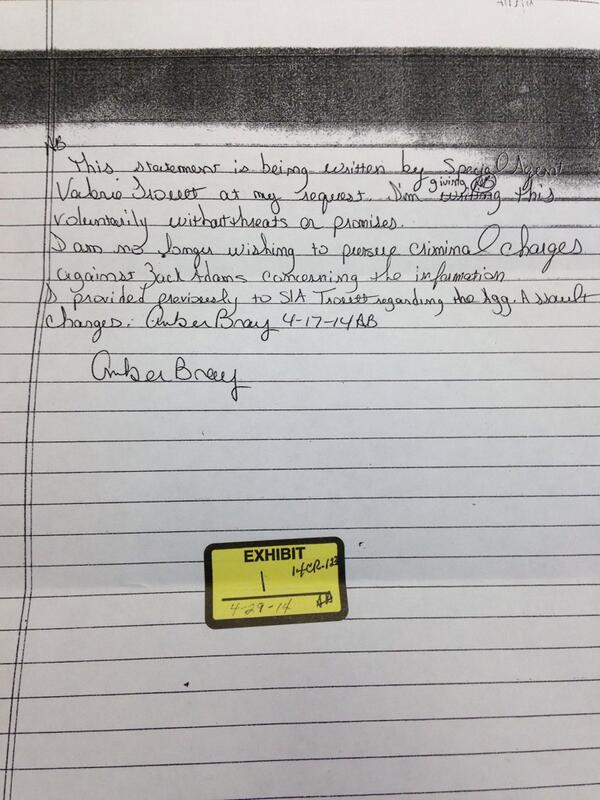 AB
This statement is being written by Special Agent
Valerie Trouett at my request. I'm writing giving AB this
voluntarily without threats or promises.
I am no longer wishing to persue criminal charges
against Zack Adams concerning the information
I provided previously to S/A Trouett regarding the Agg. Assault
charges. Amber Bray 4-17-14 AB
Amber Bray
EXHIBIT
1
14CR-123
4-29-14